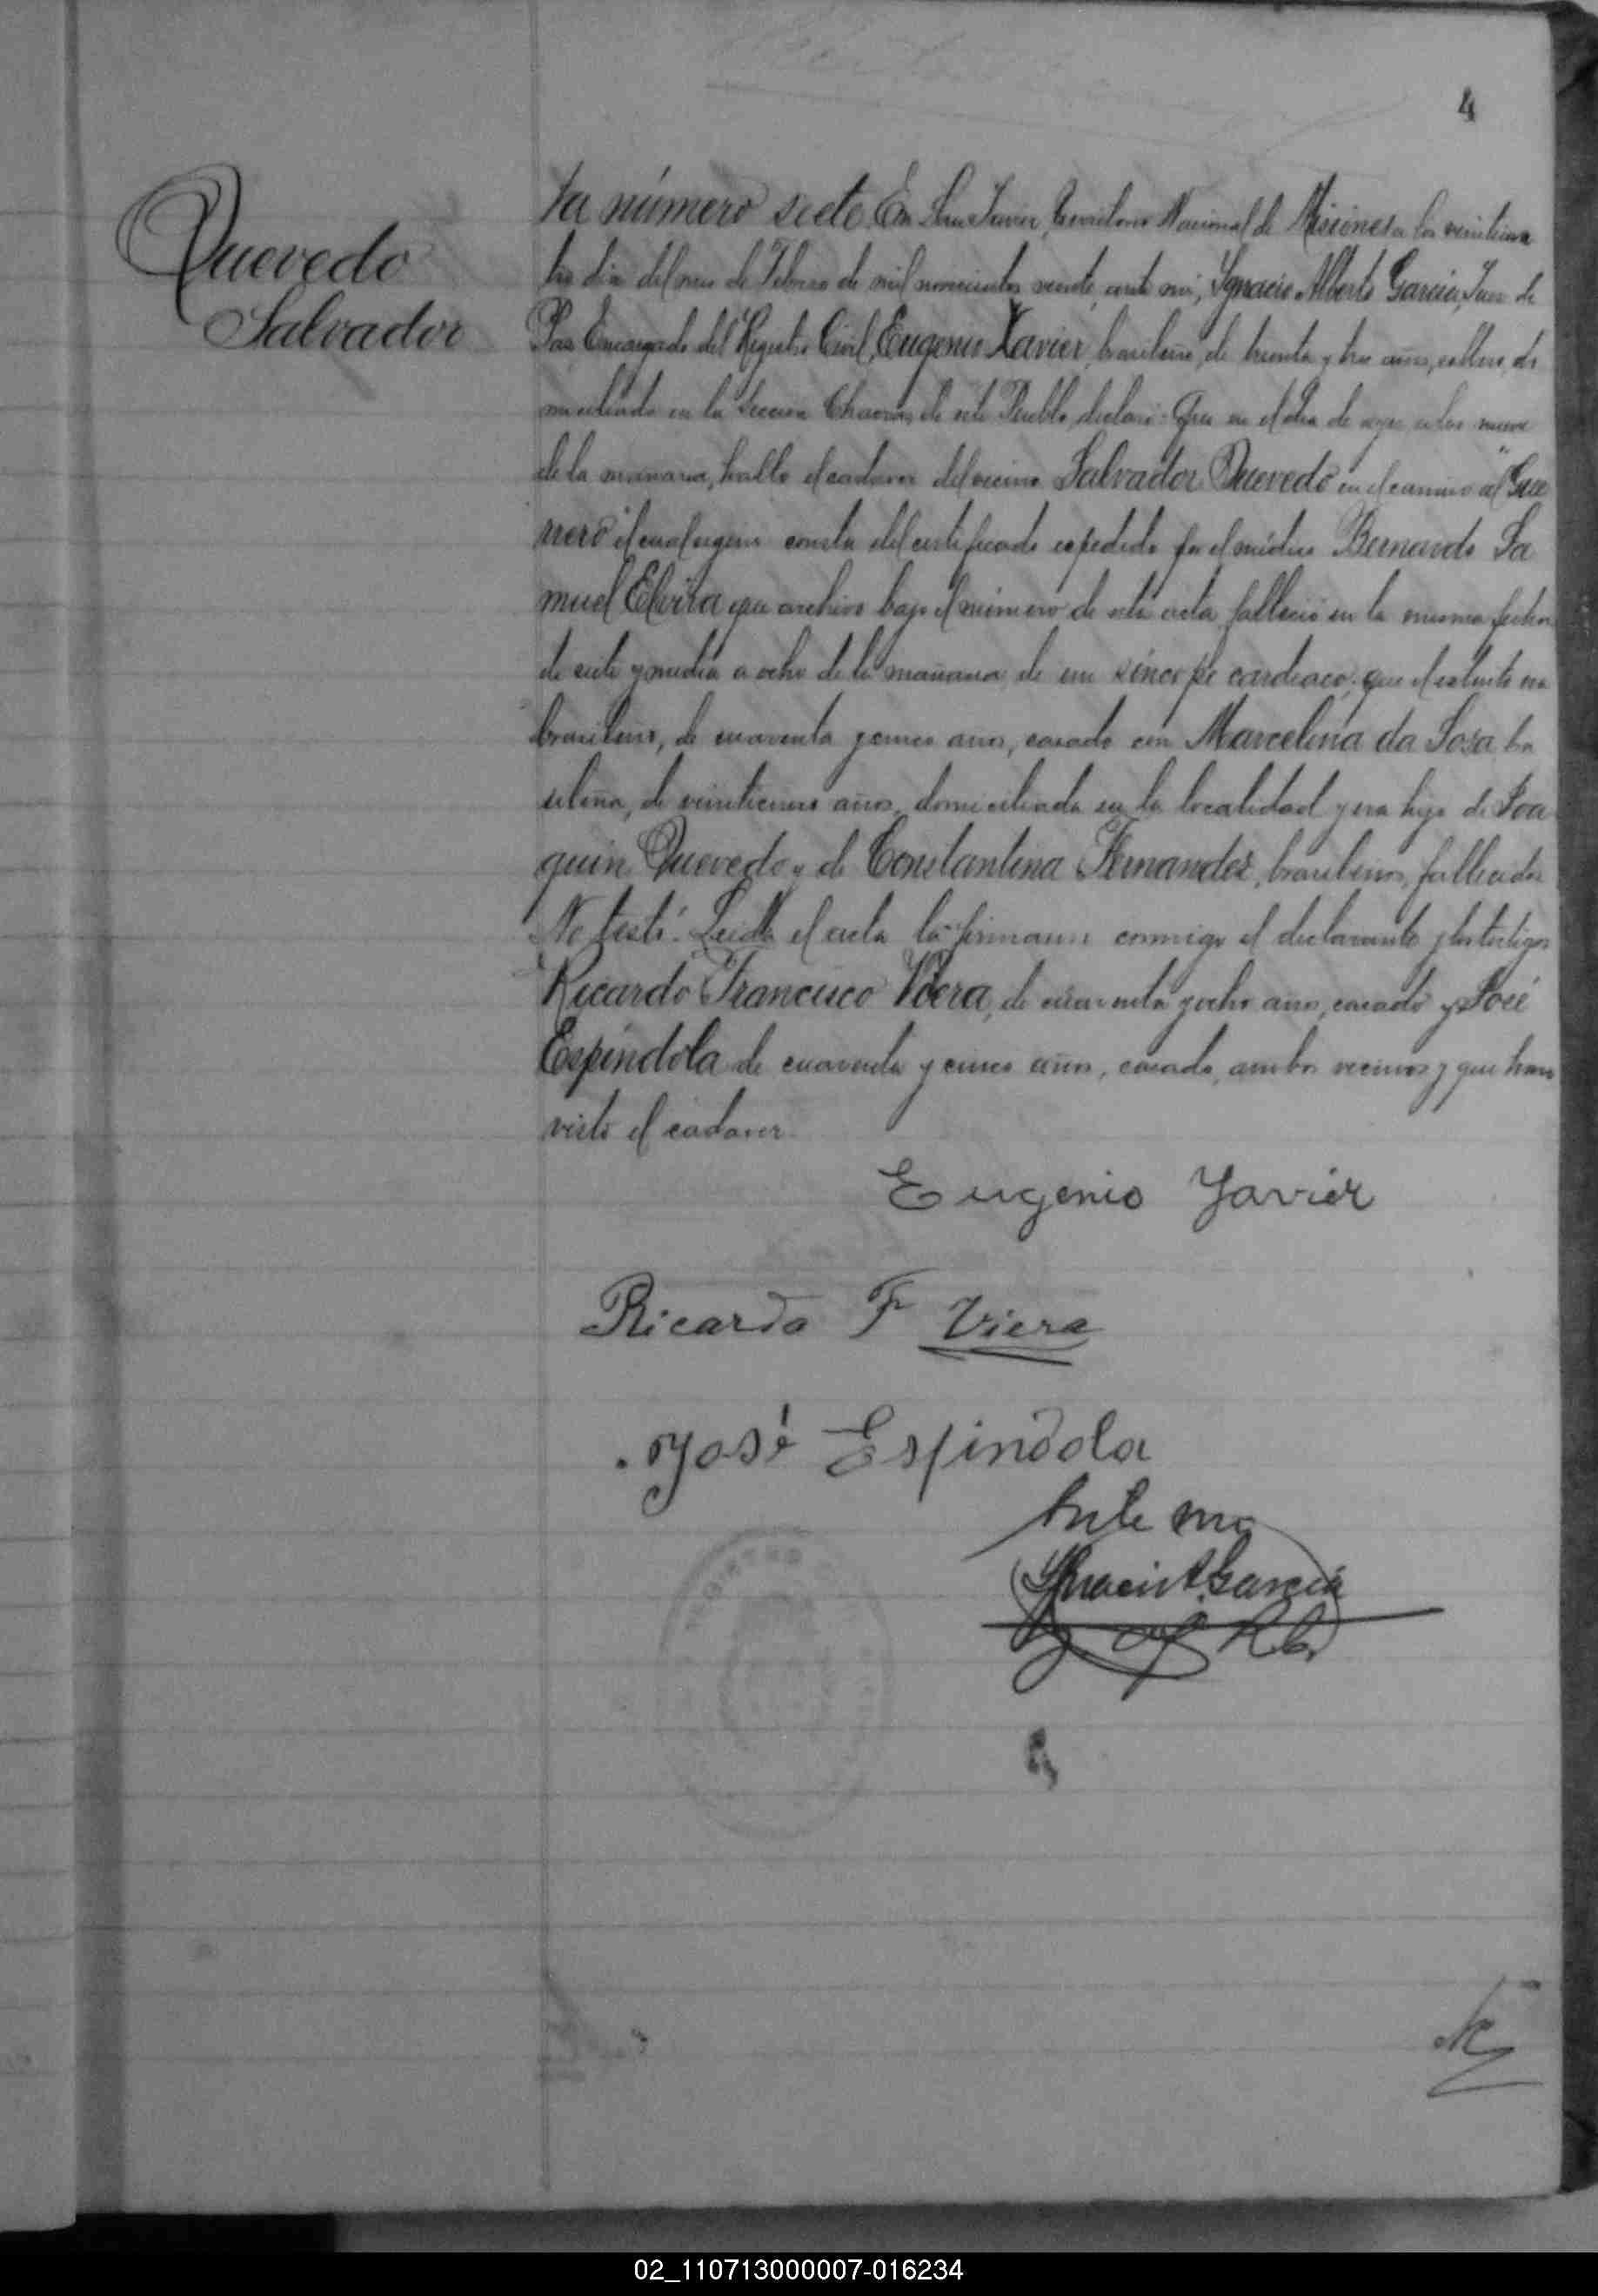 4
Quevedo
Salvador
ta número siete. En San Javier, Territorio Nacional de Misiones a los veinticua
tro dia del mes de Febrero de mil novecientos veinte, ante mi, Ygnacio Alberto Garcia, Juez de
Paz Encargado del Registro Civil, Eugenio Xavier, brasileño, de treinta y tres años, soltero, do
miciliado en la Seccion Chacras de este Pueblo, declaró: Que en el dia de ayer a las nueve
de la mañana, halló el cadaver del vecino Salvador Quevedo en el camino al "Gue
rrero" el cual segun consta del certificado expedido por el médico Bernardo Sa
muel Elvira que archivo bajo el número de esta acta, falleció en la misma fecha
de siete y media a ocho de la mañana de un síncope cardiaco; que el extinto era
brasileño, de cuarenta y cinco años, casado con Marcelina da Sosa, bra
sileña, de años, domiciliada en la localidad y era hijo de Joa
quin Quevedo y de Constantina Fernandez, brasileños, fallecidos
No testó. Leida el acta la firmaron conmigo el declarante y los testigos
Ricardo Francisco Viera, de cuarenta y ocho años, casado y José
Espíndola de cuarenta y cinco años, casado, ambos vecinos y que han
visto el cadaver.
Eugenio Javier
Ricardo F Viera
José Espindola
Ante mi
Ygnacio A. Garcia
02_110713000007-016234